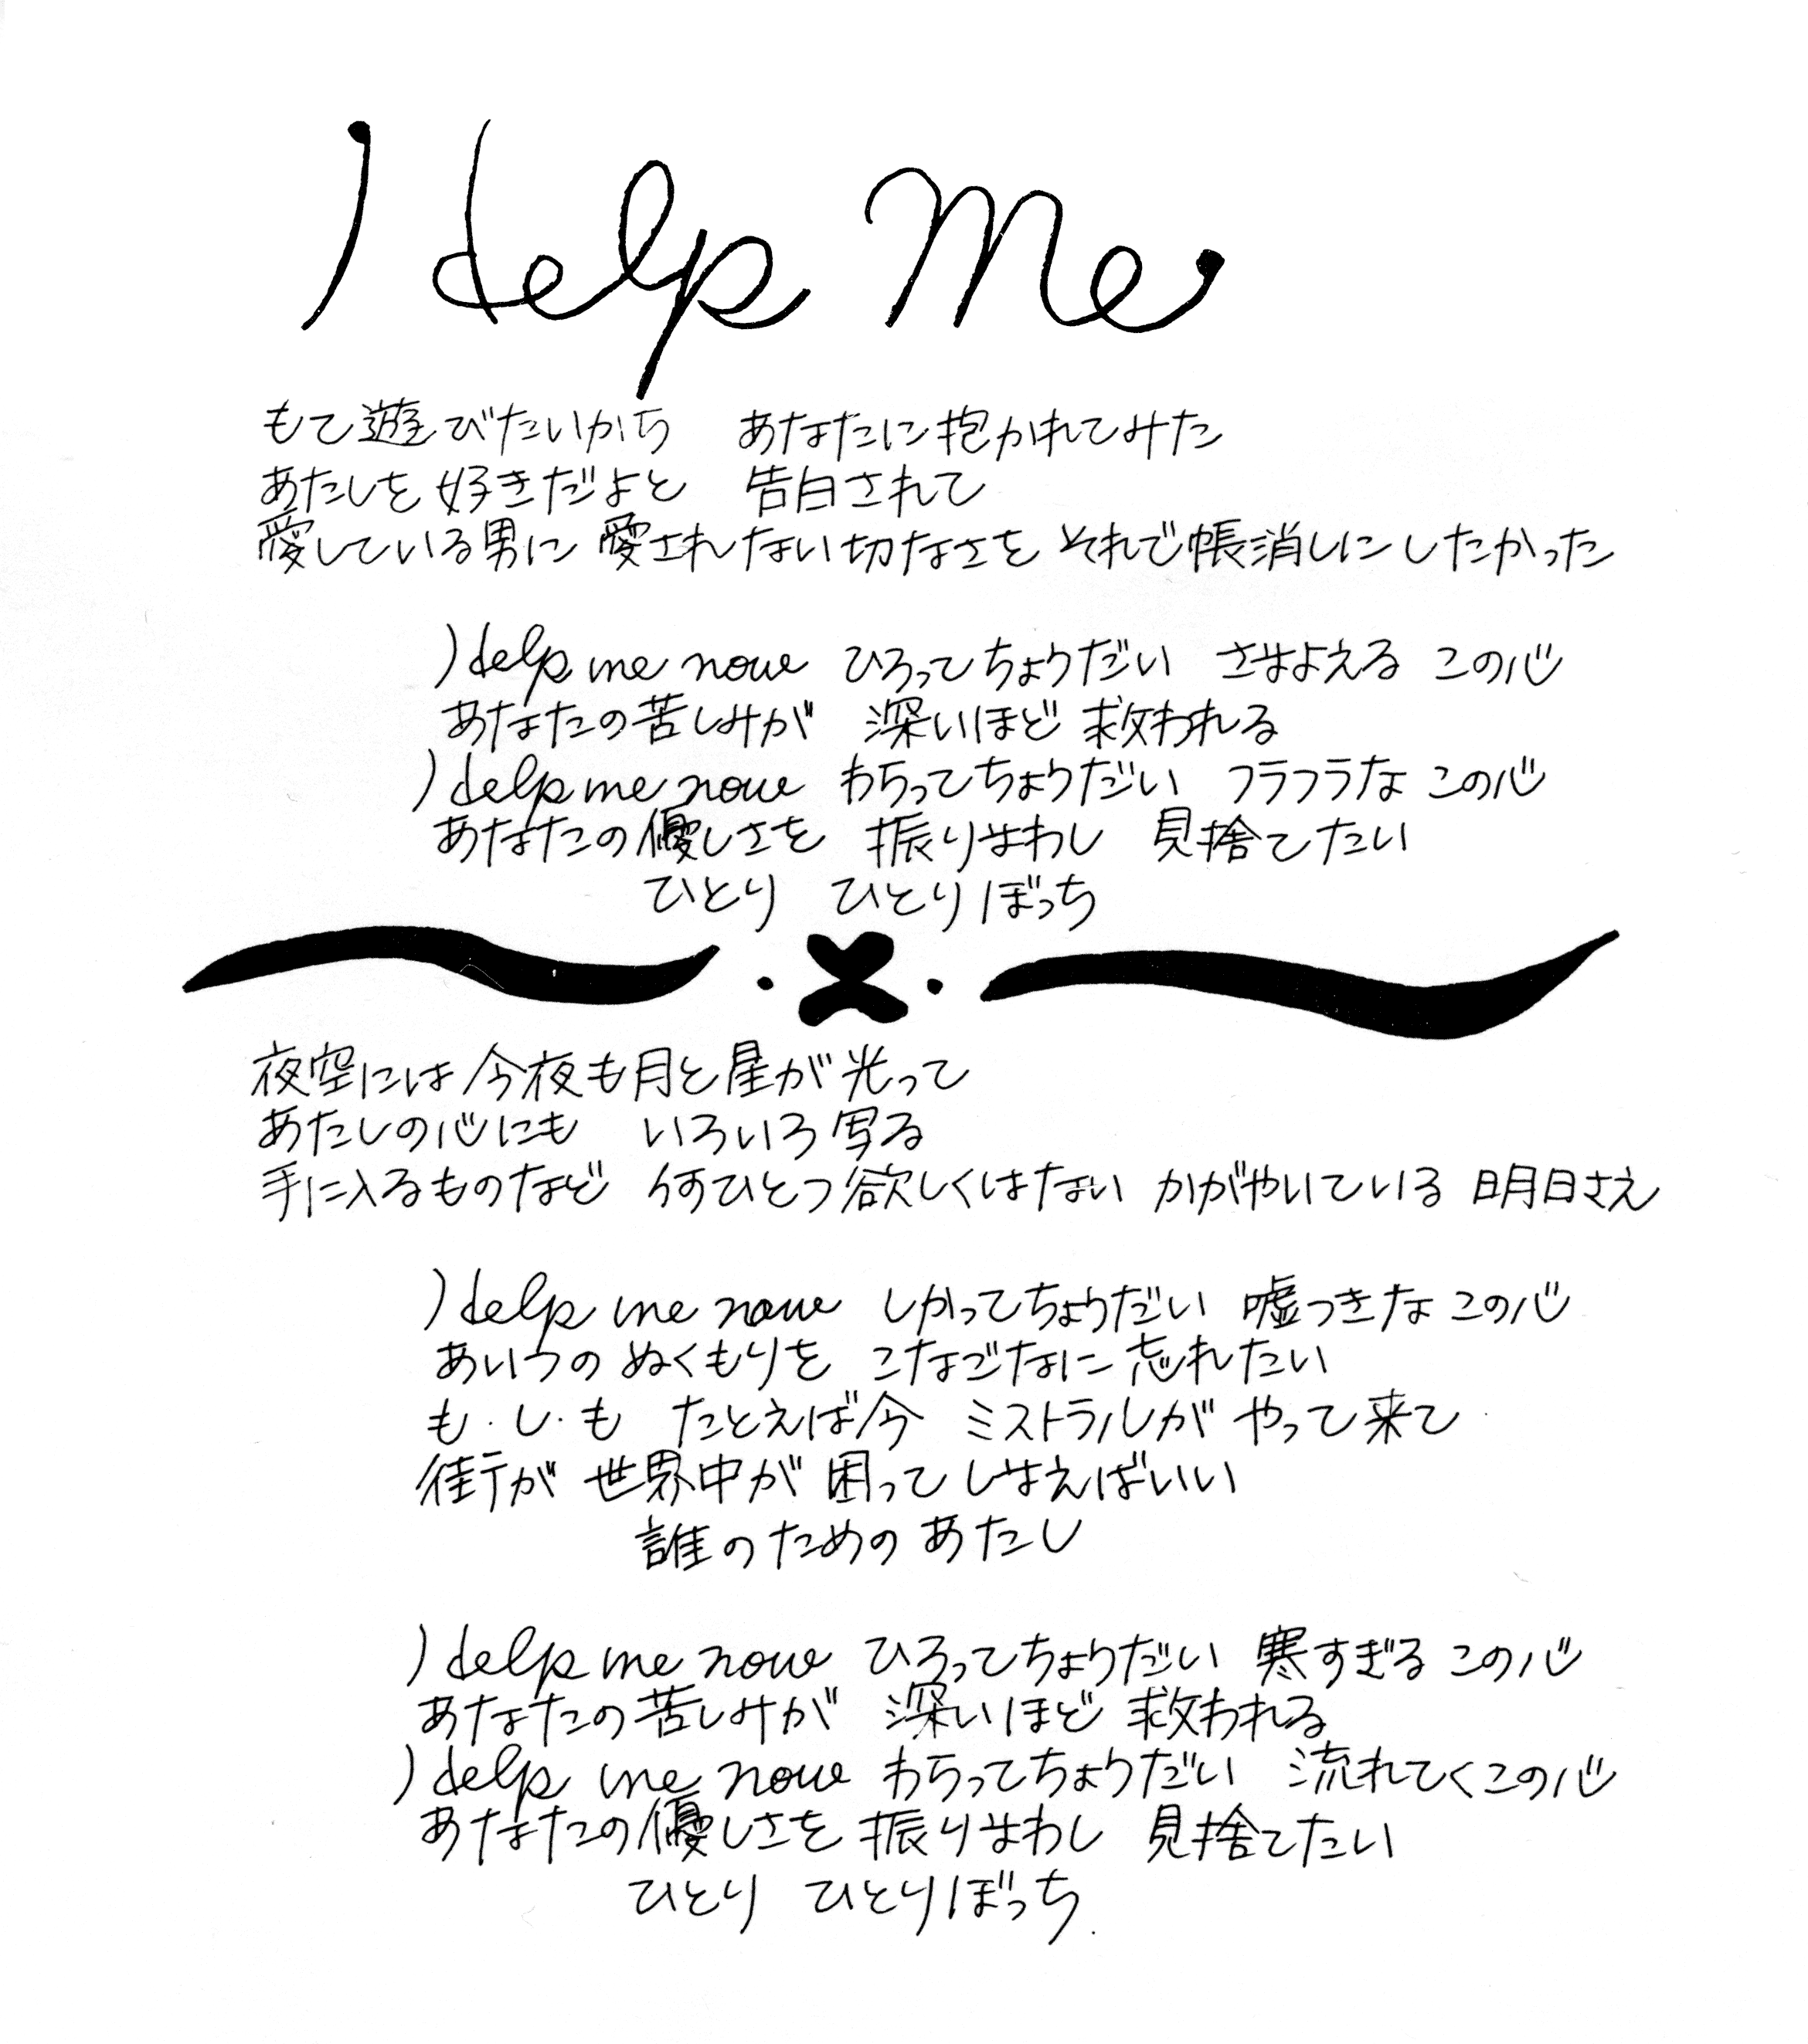 Help Me
もて遊びたいから　あなたに抱かれてみた
あたしを好きだよと　告白されて
愛している男に 愛されない切なさを それで帳消しにしたかった
Help me now ひろってちょうだい さまよえる この心
あなたの苦しみが 深いほど 救われる
Help me now わらってちょうだい フラフラな この心
あなたの優しさを 振りまわし 見捨てたい
ひとり ひとりぼっち
夜空には今夜も月と星が光って
あたしの心にも いろいろ写る
手に入るものなど 何ひとつ欲しくはない かがやいている 明日さえ
Help me now しかってちょうだい 嘘つきな この心
あいつの ぬくもりを こなごなに忘れたい
も・し・も たとえば今 ミストラルが やって来て
街が 世界中が 困って しまえばいい
誰のための あたし
Help me now ひろってちょうだい 寒すぎる この心
あなたの苦しみが 深いほど 救われる
Help me now わらってちょうだい 流れてくこの心
あなたの優しさを 振りまわし 見捨てたい
ひとり ひとりぼっち